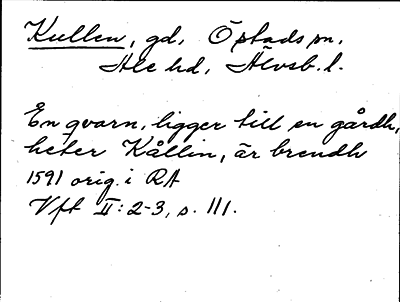 Kullen, gd, Öptads sn,
Ale hd, Älvsb. l.
En qvarn, ligger till en gårdh,
heter Kållin, är brendh
1591 orig. i RA
Vft II: 2-3, s. 111.